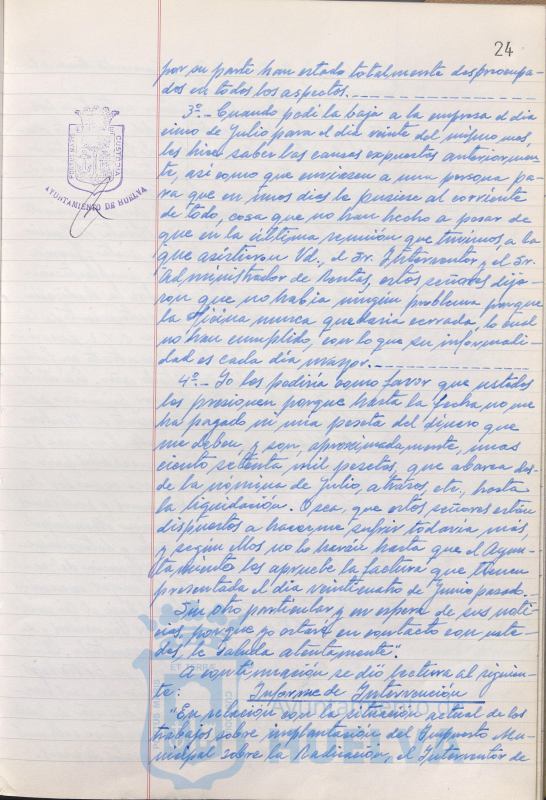 24
por su parte han estado totalmente despreocupa-
dos en todos los aspectos.
3º.- Cuando pedí la baja a la empresa el día
cinco de Julio para el día veinte del mismo mes,
les hice saber las causas expuestas anteriormen-
te, así como que enviasen a una persona pa-
ra que en unos días le pusiese al corriente
de todo, cosa que no han hecho a pesar de
que en la última reunión que tuvimos a la
que asistieron Vd., el Sr. Interventor y el Sr.
Administrador de Rentas, estos señores dije-
ron que no había ningún problema porque
la Oficina nunca quedaría cerrada, lo cual
no han cumplido, con lo que su informali-
dad es cada día mayor.
4º.- Yo les pediría como favor que ustedes
les presionen porque hasta la fecha no me
ha pagado ni una peseta del dinero que
me deben, y son, aproximadamente, unas
ciento setenta mil pesetas, que abarca des-
de la nómina de Julio, atrasos, etc., hasta
la liquidación. O sea, que estos señores están
dispuestos a hacerme sufrir todavía más,
y según ellos no lo harán hasta que el Ayun-
tamiento les apruebe la factura que tienen
presentada el día veinticuatro de Junio pasado.-
Sin otro particular y en espera de sus noti-
cias, porque yo estaré en contacto con uste-
des, le saluda atentamente".
A continuación se dió lectura al siguien-
te: Informe de Intervención
"En relación con la situación actual de los
trabajos sobre implantación del Impuesto Mu-
nicipal sobre la Radicación, el Interventor de
PORTUS MARIS
CUSTODIA
AYUNTAMIENTO DE HUELVA
ET TERRAE
PORTUS MARIS
Ayuntamiento de
HUELVA